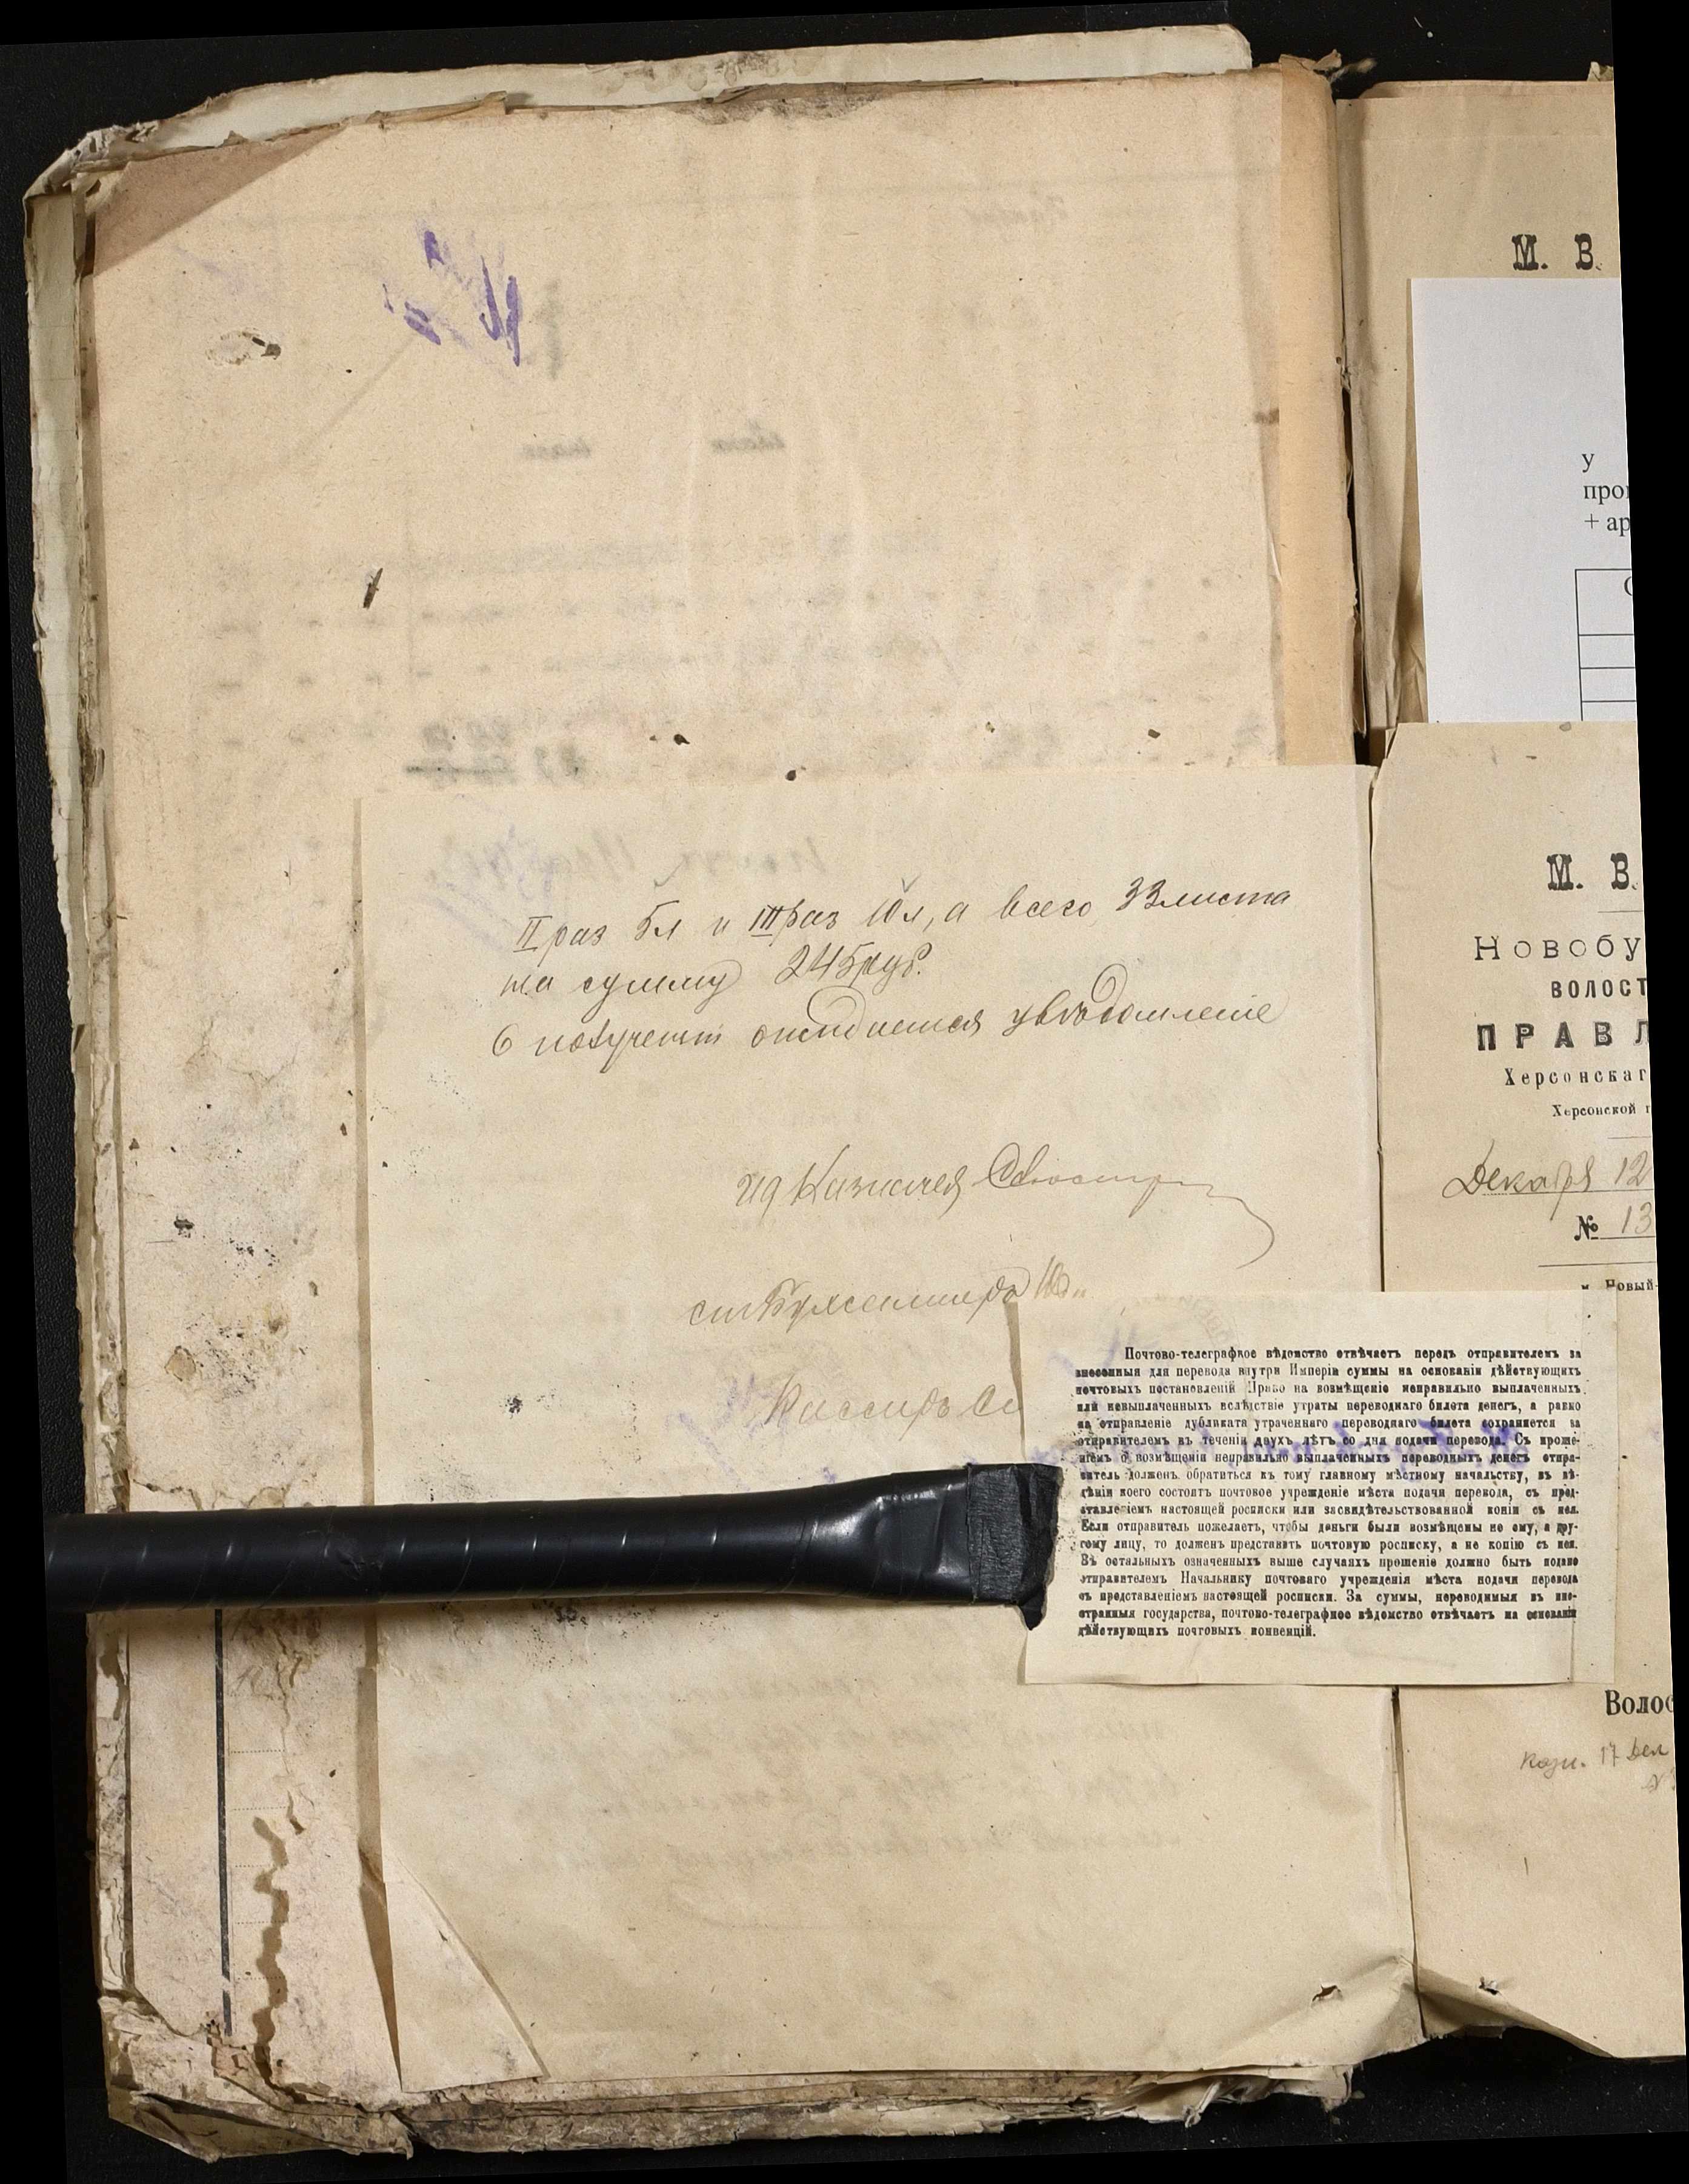 II раз 5л и III раз 10л, а всего 33 листа
на сумму 245 руб.
О получении ожидается уведомленіе
ид Казначея
ст Бухгалтеръ
Кассиръ
Почтово-телеграфное вѣдомство отвѣчаетъ передъ отправителемъ за
внесенныя для перевода внутри Имперіи суммы на основаніи дѣйствующихъ
почтовыхъ постановленій Право на возмѣщеніе неправильно выплаченныхъ
или невыплаченныхъ вслѣдствіе утраты переводнаго билета денегъ, а равно
на отправленіе дубликата утраченнаго переводнаго билета сохраняется за
отправителемъ въ теченіи двухъ лѣтъ со дня подачи перевода. Съ проше-
ніемъ о возмѣщеніи неправильно выплаченныхъ переводныхъ денегъ отпра-
витель долженъ обратиться къ тому главному мѣстному начальству, въ вѣ-
дѣніи коего состоитъ почтовое учрежденіе мѣста подачи перевода, съ пред-
ставленіемъ настоящей росписки или засвидѣтельствованной копіи съ нея.
Если отправитель пожелаетъ, чтобы деньги были возмѣщены не ему, а дру-
гому лицу, то долженъ представить почтовую росписку, а не копію съ нея.
Въ остальныхъ означенныхъ выше случаяхъ прошеніе должно быть подано
отправителемъ Начальнику почтоваго учрежденія мѣста подачи перевода
съ представленіемъ настоящей росписки. За суммы, переводимыя въ ино-
странныя государства, почтово-телеграфное вѣдомство отвѣчаетъ на основаніи
дѣйствующихъ почтовыхъ конвенцій.
М. В.
у
+ ар
М. В.
Новобу
ВОЛОСТ
ПРАВЛ
Херсонскаг
Херсонской г
Декабря 12
№ 13
м. Новый-
Волос
17 Дек